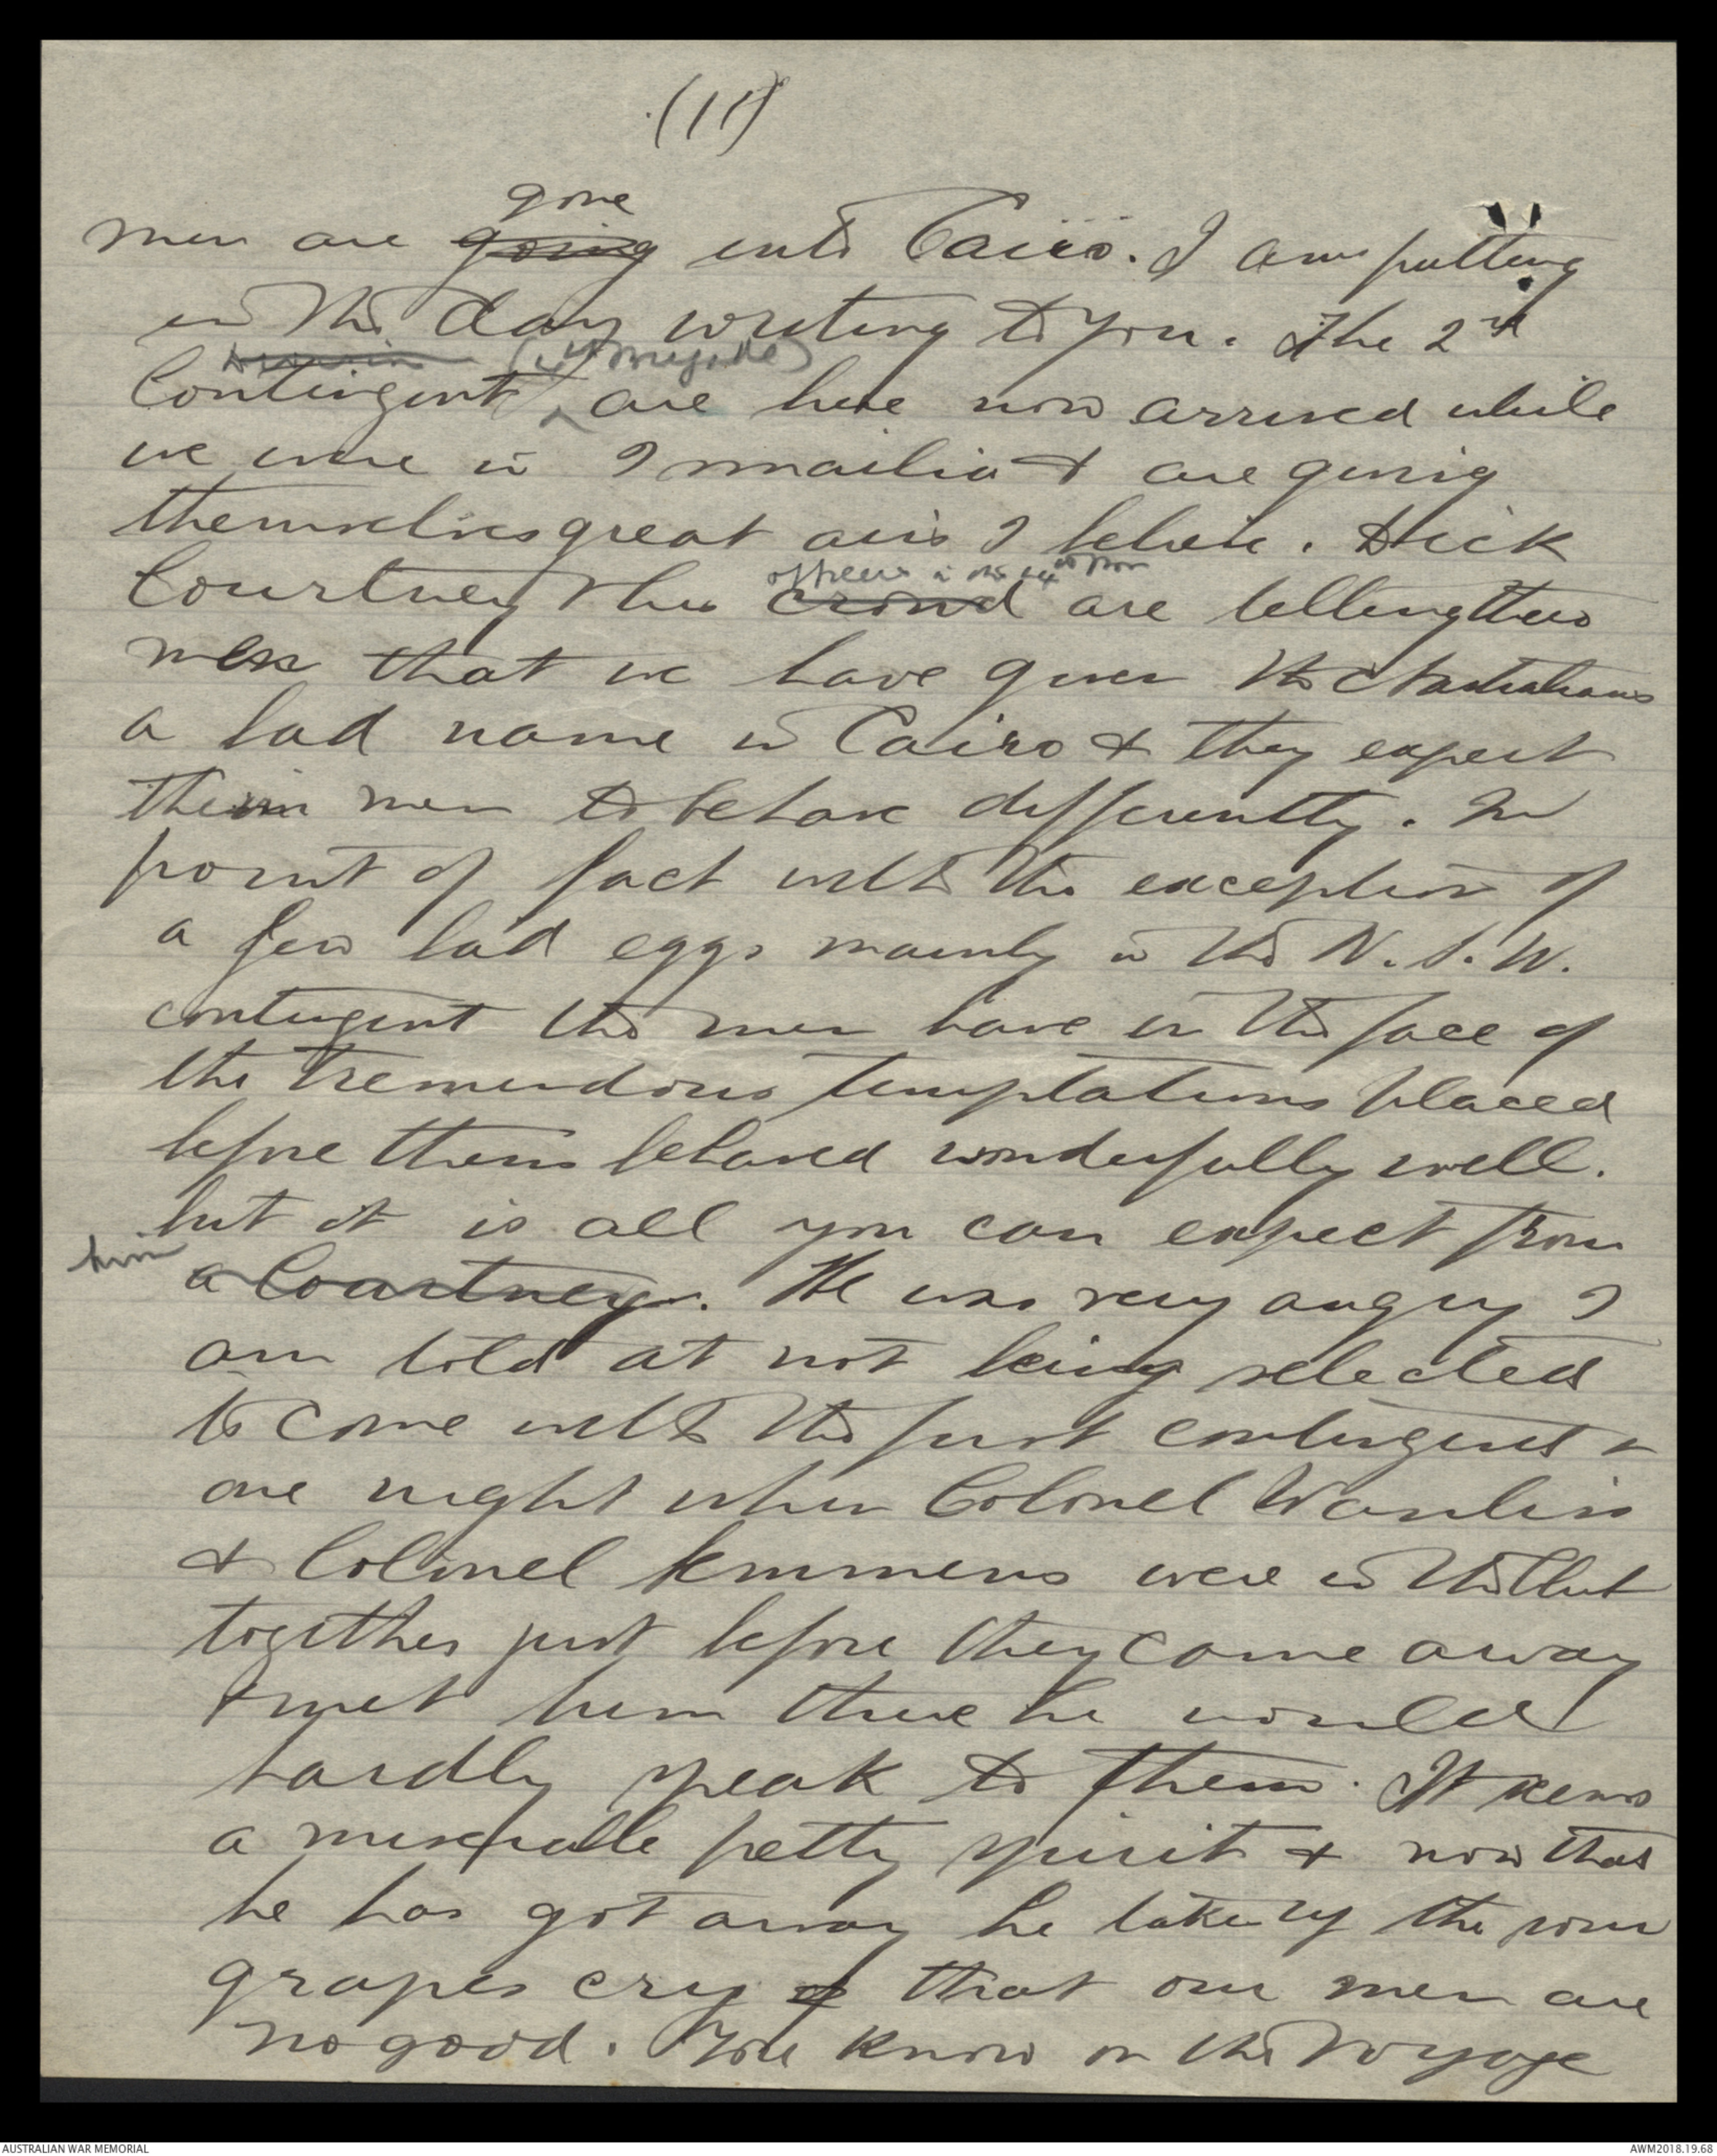 (11)
gone
men are going into Cairo. I am putting
in the day writing to you. The 2nd
Division (4th Brigade)
Contingent are here now arrived while
we were in Ismailia & are giving
themselves great airs I believe. Dick
officers in the 14th
Courtney & his crowd are telling their
men that we have given the Australians
a bad name in Cairo & they expect
their men to behave differently. In
point of fact with the exception of
a few bad eggs mainly in the N.S.W.
contingent the men have in the face of
the tremendous temptations placed
before them behaved wonderfully well.
but it is all you can expect from
him
a Courtney. He was very angry I
am told at not being selected
to come with the first contingent &
one night when Colonel Wanliss
& Colonel Semmens were in the Club
together just before they came away
& met him there he would
hardly speak to them. It seems
a miserable petty spirit & now that
he has got away he takes up the sour
grapes cry that our men are
no good. You know on the voyage
AUSTRALIAN WAR MEMORIAL
AWM2018.19.68